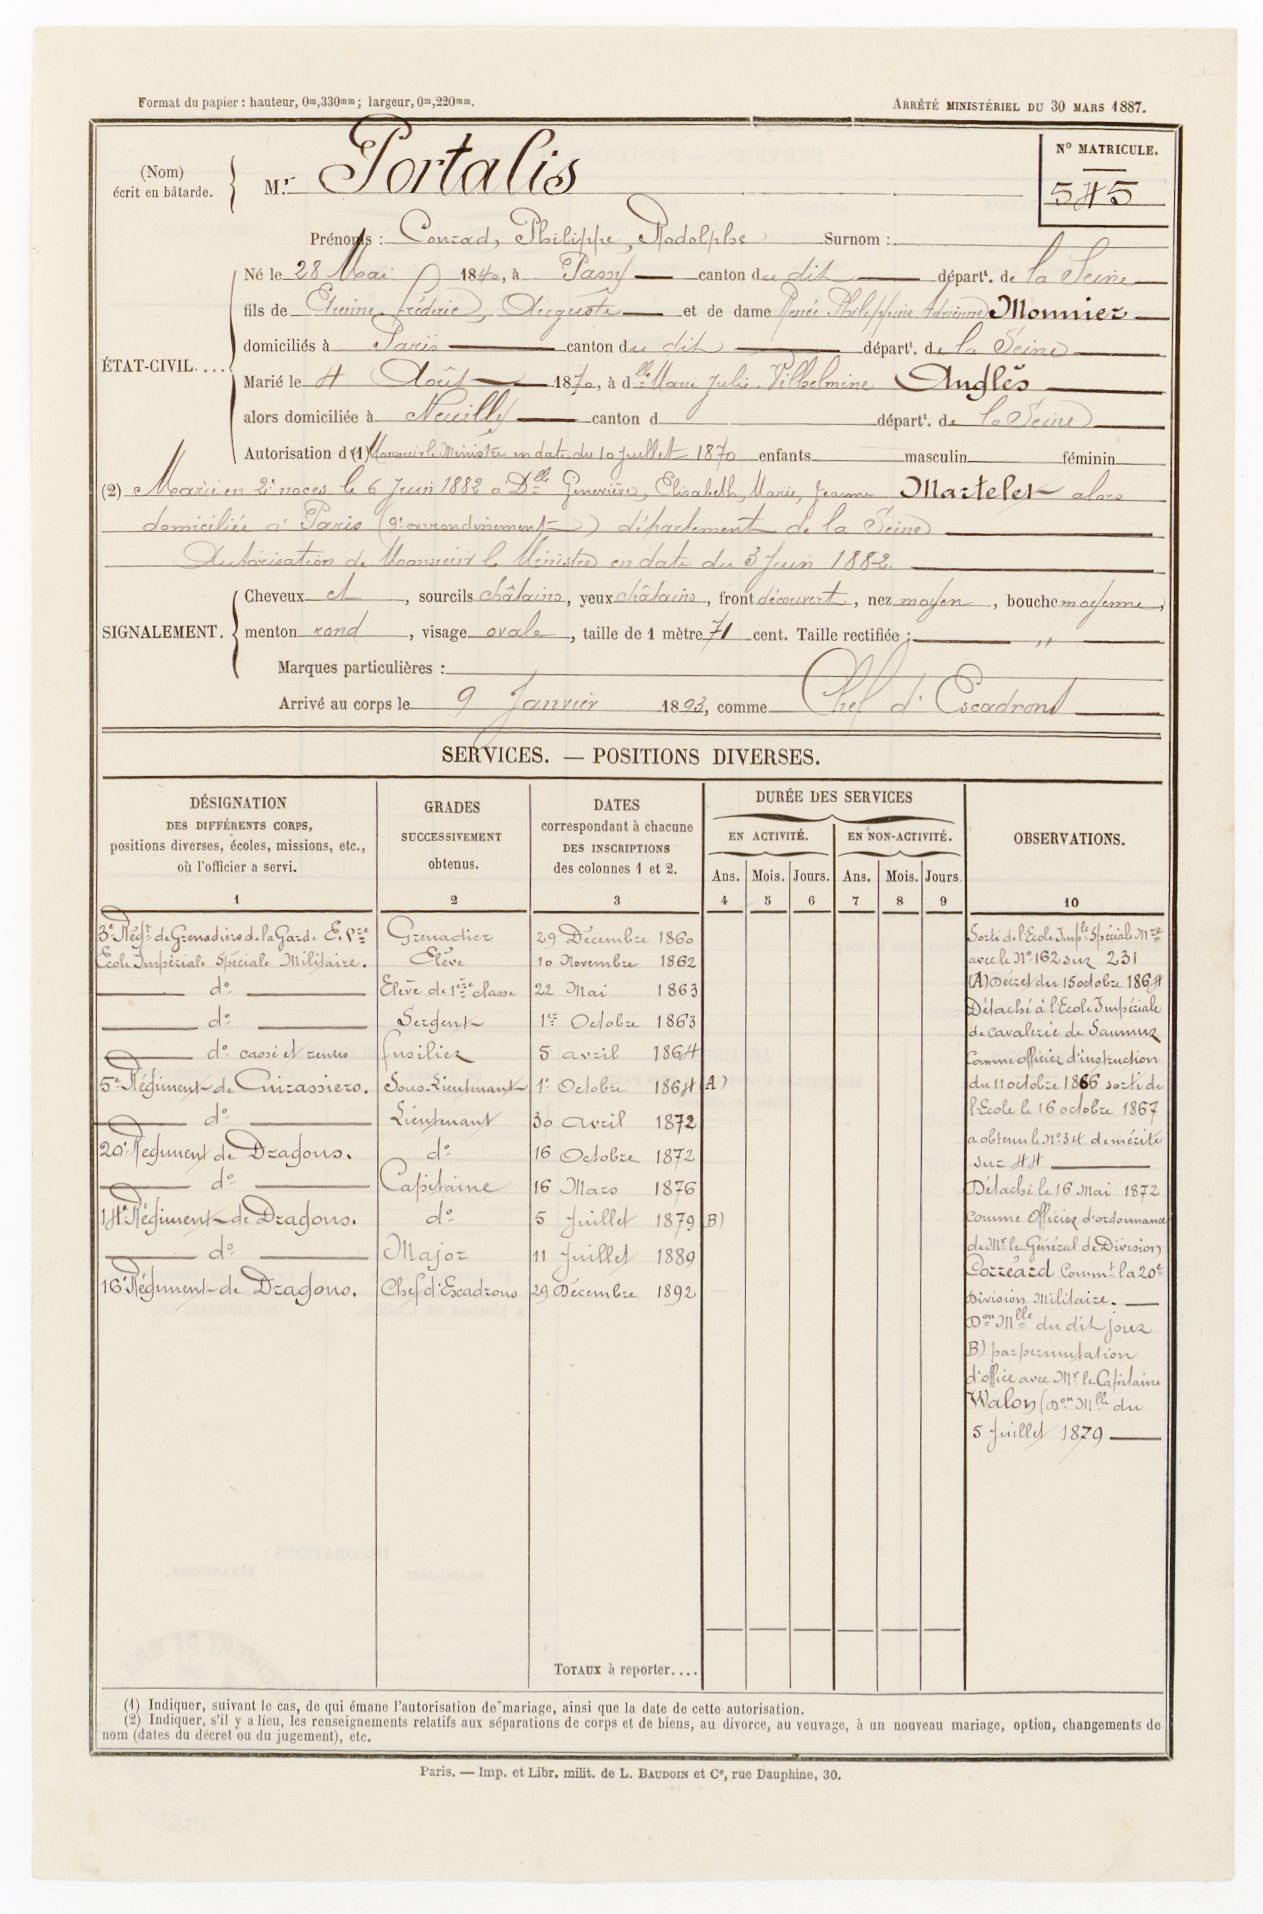 Format du papier : hauteur, 0m,330mm ; largeur, 0m,220mm.
ARRÊTÉ MINISTÉRIEL DU 30 MARS 1887.
(Nom)
écrit en bâtarde.
Mr Portalis
No MATRICULE.
545
Prénoms : Conrad, Philippe, Rodolphe Surnom :
ÉTAT-CIVIL....
Né le 28 Mai 1840, à Passy canton du dit départt. de la Seine
fils de Etienne Fréderic, Auguste et de dame Renée Philippine Adrienne Monnier
domiciliés à Paris canton du dit départt. de la Seine
Marié le 4 Août 1870, à dlle Marie Julie Vilhelmine Anglès
alors domiciliée à Neuilly canton d départt. de la Seine
Autorisation d (1) Monsieur le Ministre en date du 10 Juillet 1870 enfants masculin féminin
(2) Marié en 2e noces le 6 Juin 1882 à Dlle Geneviève, Elisabeth, Marie, Jeanne Martelet alors
domiciliée à Paris (9e arrondissement) département de la Seine
Autorisation de Monsieur le Ministre en date du 3 Juin 1882
SIGNALEMENT.
Cheveux et, sourcils châtains, yeux châtains, front découvert, nez moyen, bouche moyenne,
menton rond, visage ovale, taille de 1 mètre 71 cent. Taille rectifiée : "
Marques particulières :
Arrivé au corps le 9 Janvier 1893, comme Chef d'Escadrons
SERVICES. — POSITIONS DIVERSES.
DÉSIGNATION
DES DIFFÉRENTS CORPS,
positions diverses, écoles, missions, etc.,
où l'officier a servi.
1
GRADES
SUCCESSIVEMENT
obtenus.
2
DATES
correspondant à chacune
DES INSCRIPTIONS
des colonnes 1 et 2.
3
DURÉE DES SERVICES
EN ACTIVITÉ. EN NON-ACTIVITÉ.
Ans. Mois. Jours. Ans. Mois. Jours.
4 5 6 7 8 9
OBSERVATIONS.
10
3e Régt de Grenadiers de la Garde E. Vre Grenadier 29 Décembre 1860
Ecole Impériale Spéciale Militaire. Elève 10 Novembre 1862
do Elève de 1ère classe 22 Mai 1863
do Sergent 1er Octobre 1863
do cassé et remis fusilier 5 avril 1864
5e Régiment de Cuirassiers. Sous-Lieutenant 1er Octobre 1864 A)
do Lieutenant 30 Avril 1872
20e Régiment de Dragons. do 16 Octobre 1872
do Capitaine 16 Mars 1876
14e Régiment de Dragons. do 5 Juillet 1879 B)
do Major 11 Juillet 1889
16e Régiment de Dragons. Chef d'Escadrons 29 Décembre 1892
Sorti de l'Ecole Imple Spéciale Mre
avec le No 162 sur 231
(A) Décret du 15 octobre 1864
Détaché à l'Ecole Impériale
de cavalerie de Saumur
comme officier d'instruction
du 11 octobre 1866 sorti de
l'Ecole le 16 octobre 1867
a obtenu le No 34 de mérite
sur 44
Détaché le 16 Mai 1872
comme Officier d'ordonnance
de Mr le Général de Division
Corréard Commt la 20e
Division Militaire.
Don Mlle du dit jour
B) par permutation
d'office avec Mr le Capitaine
Walon (Don Mlle du
5 Juillet 1879
TOTAUX à reporter....
(1) Indiquer, suivant le cas, de qui émane l'autorisation de mariage, ainsi que la date de cette autorisation.
(2) Indiquer, s'il y a lieu, les renseignements relatifs aux séparations de corps et de biens, au divorce, au veuvage, à un nouveau mariage, option, changements de
nom (dates du décret ou du jugement), etc.
Paris. — Imp. et Libr. milit. de L. BAUDOIN et Ce, rue Dauphine, 30.